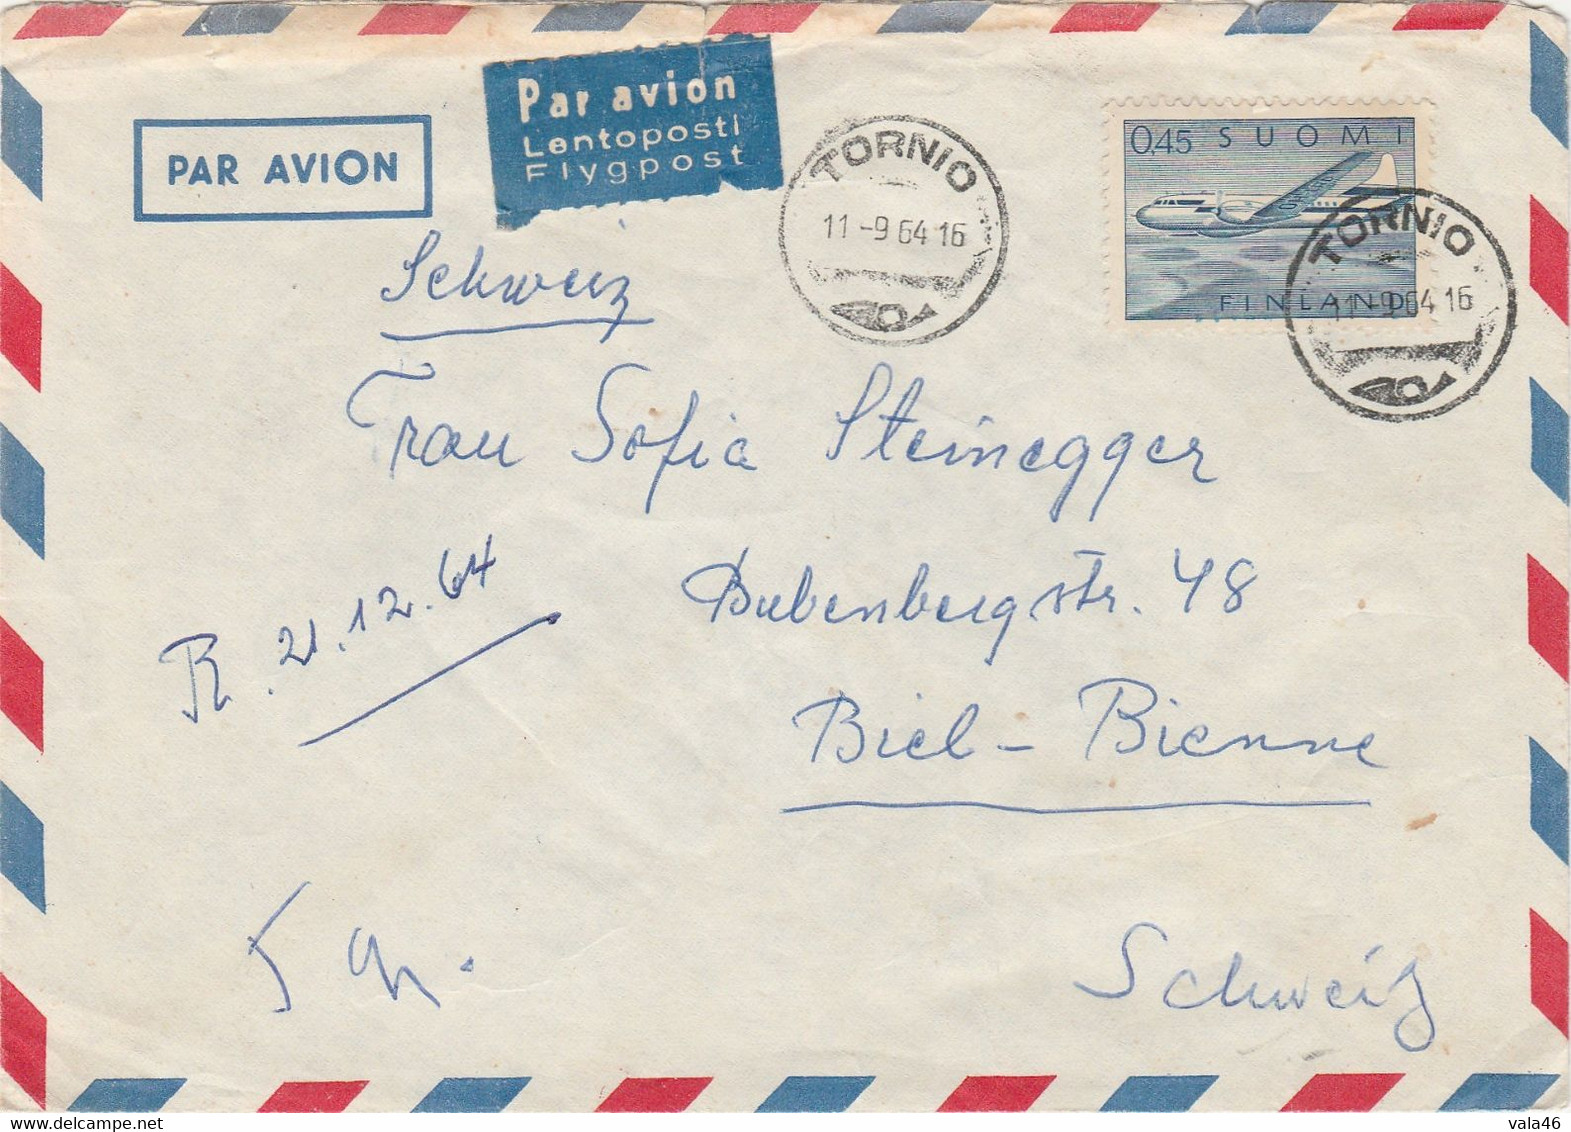 PAR AVION
Par avion
Lentoposti
Flygpost
TORNIO
11-9 64 16
0,45 SUOMI
FINLAND
TORNIO
11-9 64 16
Schweiz
Frau Sofie Steinegger
Bubenbergstr. 48
Biel - Bienne
R. 21.12.64
Schweiz
www.delcampe.net
vala46